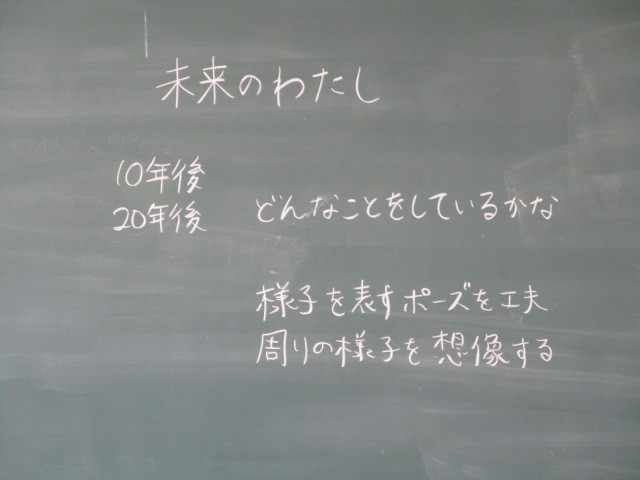 未来のわたし
10年後
20年後 どんなことをしているかな
様子を表すポーズを工夫
周りの様子を想像する